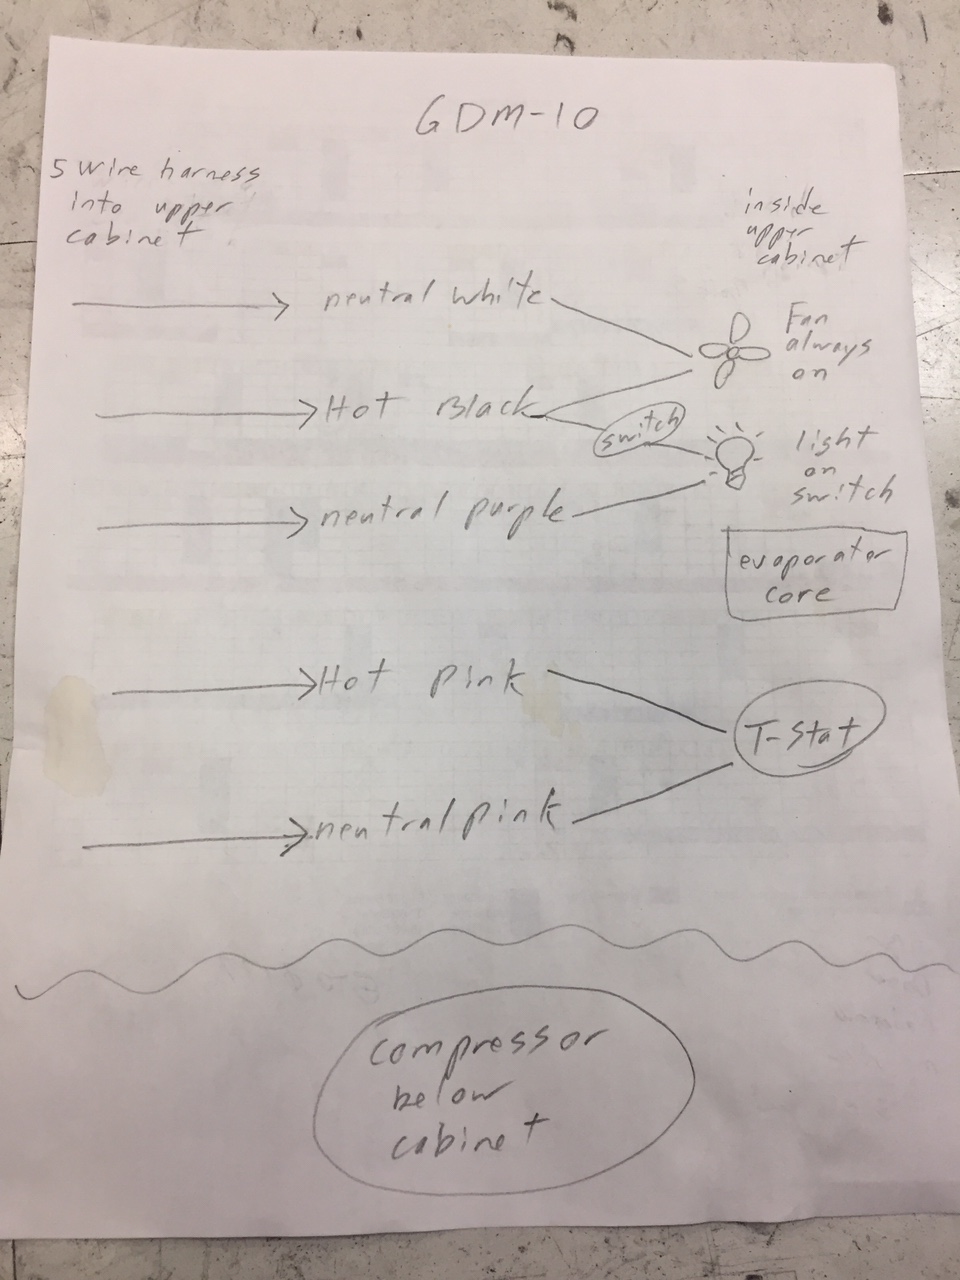 GDM-10
5 wire harness
into upper
cabinet
inside
upper
cabinet
neutral white
Fan
always
on
Hot Black
switch
light
on
switch
neutral purple
evaporator
core
Hot pink
T-Stat
neutral pink
compressor
below
cabinet